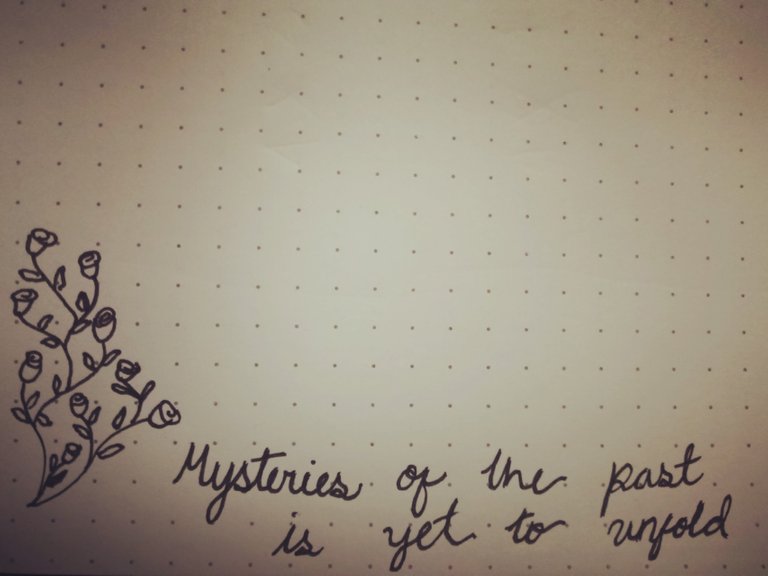 Mysteries of the past
is yet to unfold